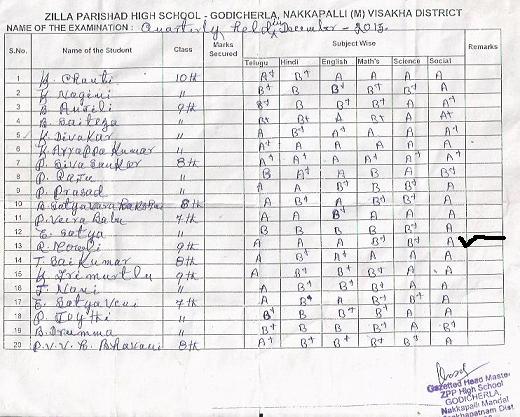 ZILLA PARISHAD HIGH SCHOOL - GODICHERLA, NAKKAPALLI (M) VISAKHA DISTRICT
NAME OF THE EXAMINATION : Quarterly held in December - 2015.
S.No. Name of the Student Class Marks Secured Subject Wise Remarks
Telugu Hindi English Math's Science Social
1 10th A+ B+ A A A A
2 K Nagini " B+ B B+ B+ B+ A
3 9th B B+ B+ B+ A A+
4 B. Saiteja " B+ B+ A B+ A A+
5 K. Divakar " A B+ A+ A A A
6 K. Ayyappa Kumar " A+ A A A A A
7 P. Siva Sankar 8th A+ A+ A A A+ A+
8 P. Raju " B A+ A B A B+
9 P. Prasad " A A B B B+ A
10 8th A B+ B+ B+ B+ A
11 P. Veera Babu 7th A A B+ A A A
12 E. Satya " B B B B B+ A
13 9th A A A B+ B+ A
14 T. Sai Kumar 8th A B+ A+ A A A
15 K Trimurtlu 9th A B+ B+ A A A
16 T. Navi " A B+ B+ B+ A A
17 E. Satyaveni 7th A B+ A B+ B+ A
18 P. Jyothi " B+ B+ B+ A B+ A
19 " B B B B A B+
20 P.V.V.B. Bhavani 8th A+ B+ B+ B+ A A
Gazetted Head Master
ZPP High School
GODICHERLA,
Nakkapalli Mandal
Visakhapatnam Dist.